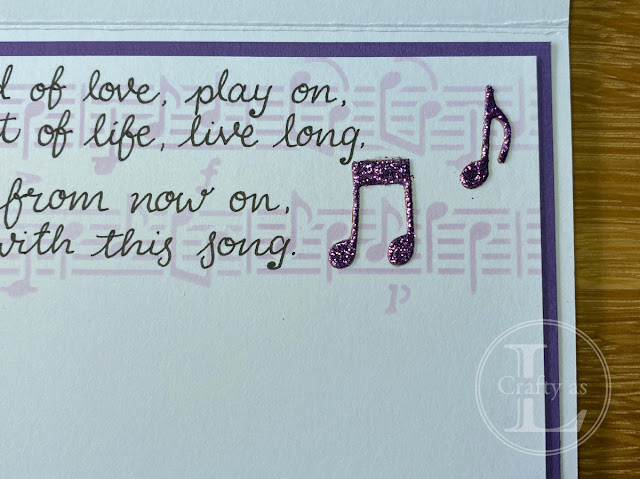 of love, play on,
of life, live long,
from now on,
with this song.
f
p
L
Crafty as